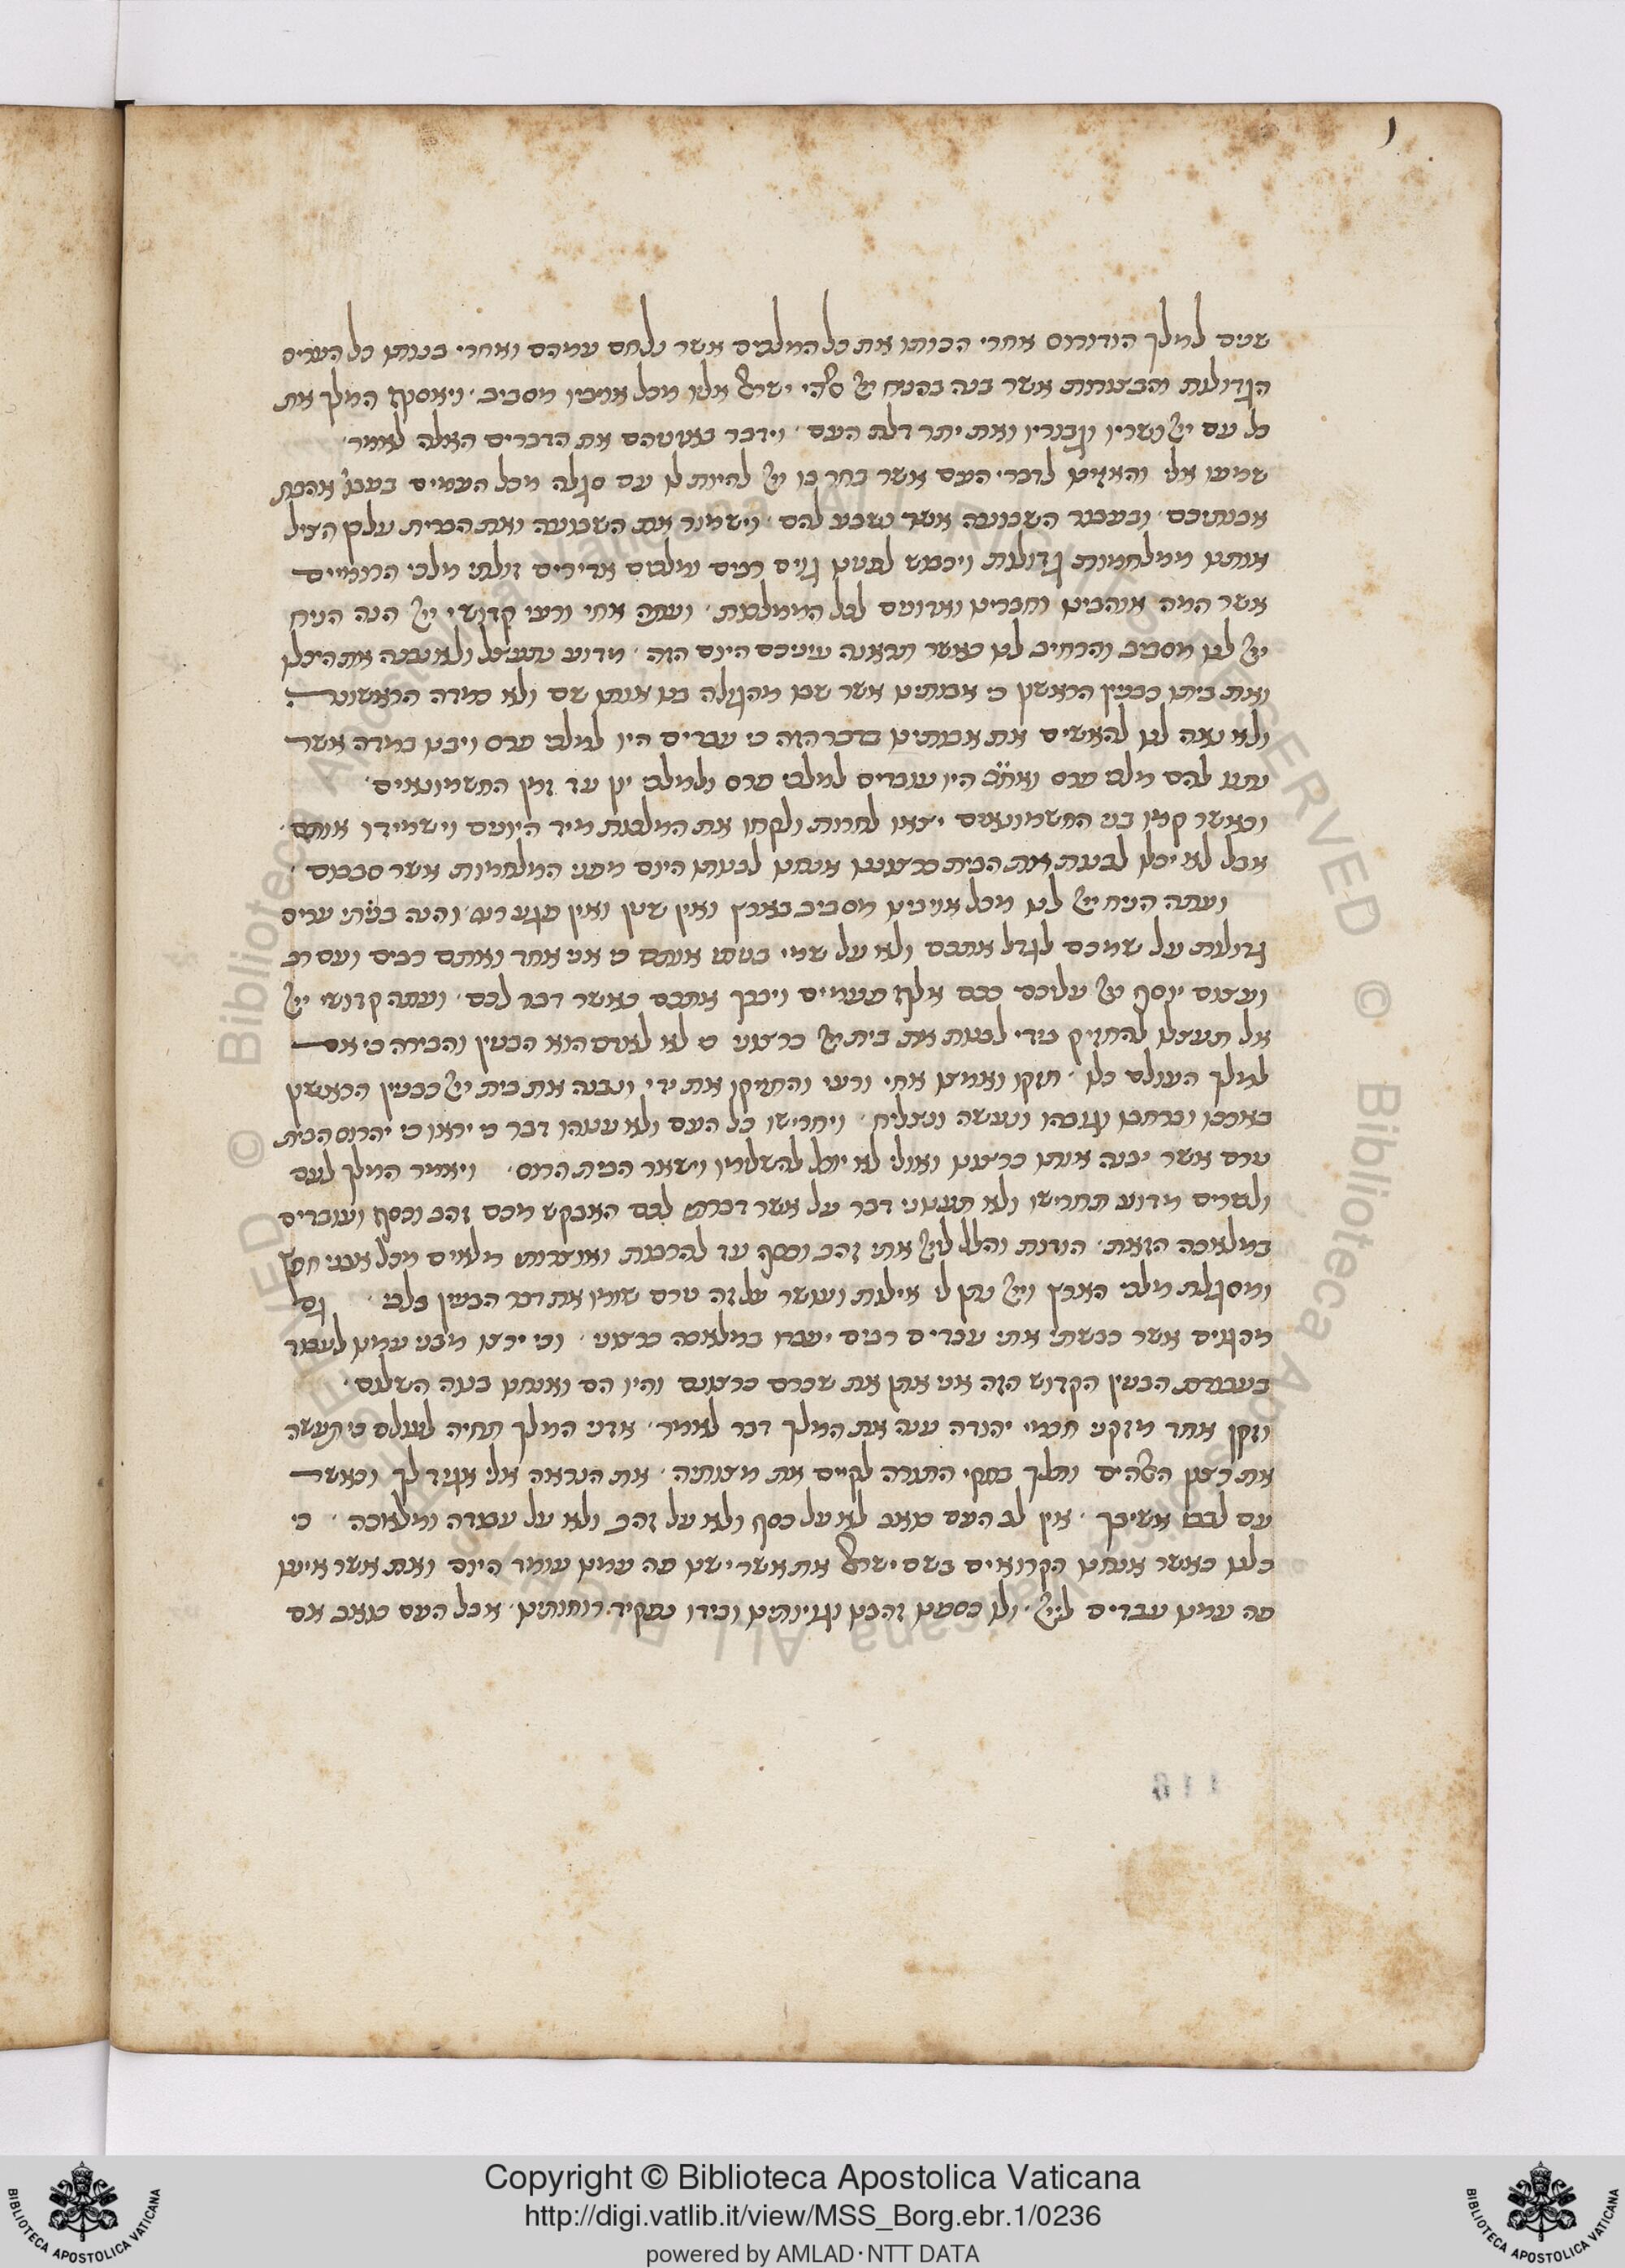 שנים למלך הורודוס אחרי הכותו את כל המלכים אשר נלחם עמהם ואחרי בנותו כל הערים
הגדולות והבצורות אשר בנה בהניח ייי אלהי ישראל אליו מכל אויביו מסביב׳ ויאסוף המלך את
כל עם ייי ושריו וגבוריו ואת יתר דלת העם׳ וידבר באזניהם את הדברים האלה לאמר׳
שמעו אלי והאזינו לדברי העם אשר בחר בו ייי להיות לו עם סגלה מכל העמים בעבור אהבת
אבותיכם׳ ובעבור השבועה אשר נשבע להם׳ וישמור את השבועה ואת הברית עלכן הציל
אותנו ממלחמות גדולות ויכבוש לפנינו גוים רבים ומלכים אדירים זולתי מלכי הרומיים
אשר המה אוהבינו וחברינו ואדונים לכל הממלכות׳ ועתה אחי ורעי קדושי ייי הנה הניח
ייי לנו מסביב והרחיב לנו כאשר תראנה עיניכם היום הזה׳ מדוע נתעצל ולא נבנה את היכלו
ואת ביתו כבנין הראשון כי אבותינו אשר שבו מהגולה בנו אותו שם ולא כמדה הראשונה
ולא נאה לנו להאשים את אבותינו בדבר הזה כי עבדים היו למלכי פרס ויבנו במדה אשר
נתנו להם מלכי פרס ואח״כ היו עובדים למלכי פרס ולמלכי יון עד זמן החשמונאים׳
וכאשר קמו בני החשמונאים יצאו לחרות ולקחו את המלכות מיד היונים וישמידו אותם׳
אבל לא יכלו לבנות את הבית כרצונם אנחנו לבנותו היום מפני המלחמות אשר סבבום׳
ועתה הניח ייי לנו מכל אויבינו מסביב בארץ ואין שטן ואין פגע רע׳ והנה בניתי ערים
גדולות על שמכם לגדל אתכם ולא על שמי בניתי אותם כי אני אחד ואתם רבים ועם רב
ועצום יוסף ייי עליכם ככם אלף פעמים ויברך אתכם כאשר דבר לכם׳ ועתה קדושי ייי
אל תעצלו להחזיק בידי לבנות את בית ייי כרצוני כי לא לאדם הוא הבנין והבירה כי אם
למלך העולם כלו׳ חזקו ואמצו אחי ורעי והחזיקו את ידי ונבנה את בית ייי כבנין הראשון
בארכו וברחבו וגובהו ונעשה ונצליח׳ ויחרישו כל העם ולא ענוהו דבר כי יראו כי יהרוס הבית
טרם אשר יבנה אותו כרצונו ואולי לא יוכל להשלימו וישאר הבית הרוס׳ ויאמר המלך לעם
ולשרים מדוע תחרישו ולא תענוני דבר על אשר דברתי לכם האבקש מכם זהב וכסף ועובדים
במלאכה הזאת׳ הודות והלל לייי אתי זהב וכסף עד להרבות ואוצרותי מלאים מכל אבני חפץ
ומסגולת מלכי הארץ וייי נתן לי אילות ועושר על זה טרם שומו את דבר הבנין בלבי׳ גם
מהגוים אשר כבשתי אתי עבדים רבים יעבדו במלאכה כרצוני׳ וכי ירצו מבני עמנו לעבוד
בעבודת הבנין הקדוש הזה אני אתן את שכרם כרצונם והיו הם ואנחנו בעה השלום׳
וזקן אחד מזקני חכמי יהודה ענה את המלך דבר לאמר׳ אדוני המלך תחיה לעולם כי תעשה
את רצון האלהים ותלך בחקי התורה לקיים את מצותיה׳ את הנראה אלי אגיד לך וכאשר
עם לבבי אשיבך׳ אין לב העם כואב לא על כסף ולא על זהב ולא על עבודה ומלאכה׳ כי
כלנו כאשר אנחנו הקרואים בשם ישראל את אשר ישנו פה עמנו עומד היום ואת אשר איננו
פה עמנו עבדים לייי׳ ולו כספנו זהבנו וגויותינו ובידו נפקיד רוחותינו׳ אבל העם כואב אם
116
© Biblioteca Apostolica Vaticana ALL RIGHTS RESERVED
Copyright © Biblioteca Apostolica Vaticana
http://digi.vatlib.it/view/MSS_Borg.ebr.1/0236
powered by AMLAD·NTT DATA
BIBLIOTECA APOSTOLICA VATICANA
BIBLIOTECA APOSTOLICA VATICANA